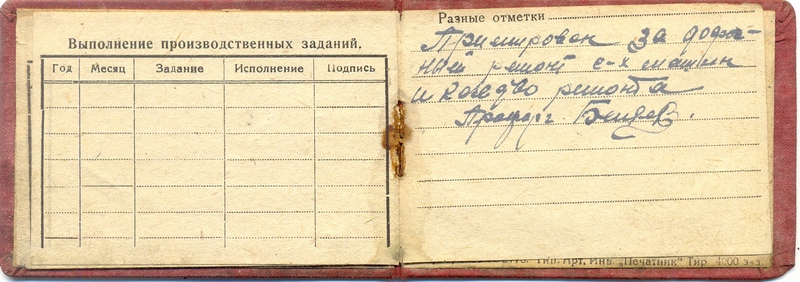 Выполнение производственных заданий.
Год Месяц Задание Исполнение Подпись
Разные отметки
Премирован за
ремонт с-х машин
и кач-во ремонта
Профорг
Тип. Арт. Инв. „Печатник" Тир. 4000 экз.